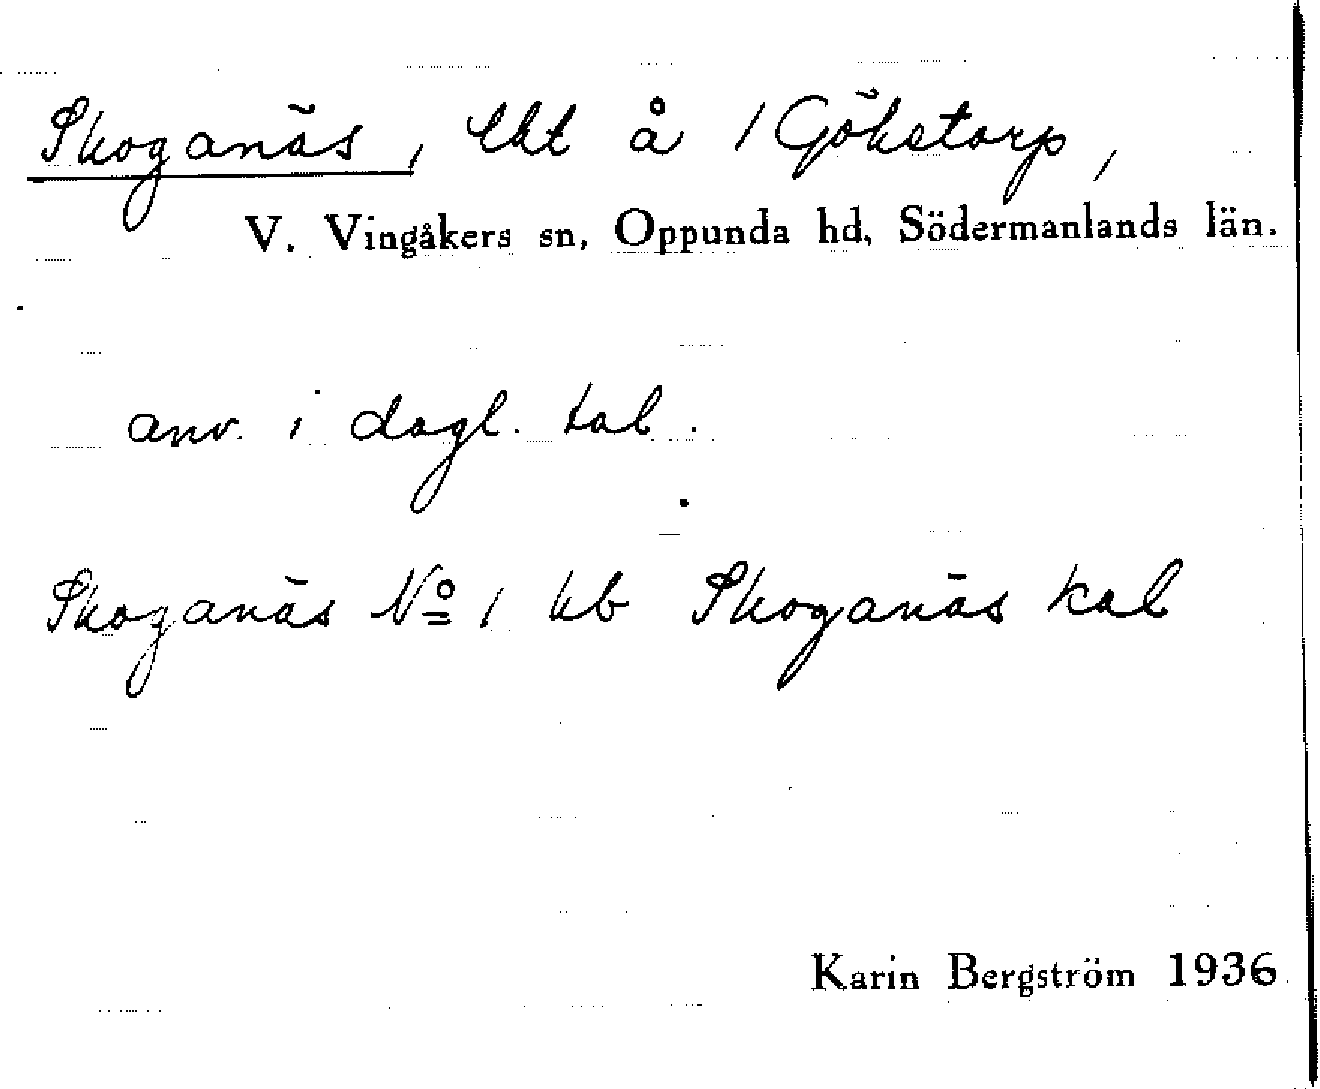 Skoganäs, lht å 1 Gökstorp,
V. Vingåkers sn, Oppunda hd, Södermanlands län.
anv. i dagl. tal.
Skoganäs Nº 1 kb Skoganäs kal
Karin Bergström 1936